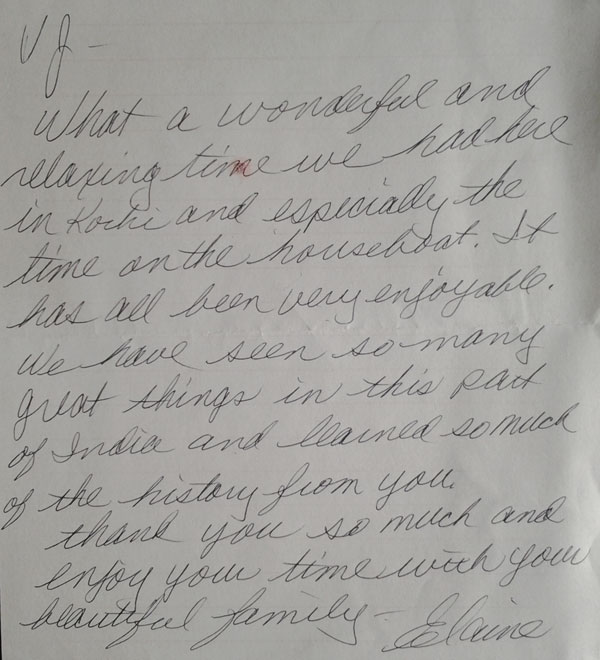 VJ -
What a wonderful and
relaxing time we had here
in Kochi and especially the
time on the houseboat. It
has all been very enjoyable.
We have seen so many
great things in this part
of India and learned so much
of the history from you.
thank you so much and
enjoy your time with your
beautiful family - Elaine